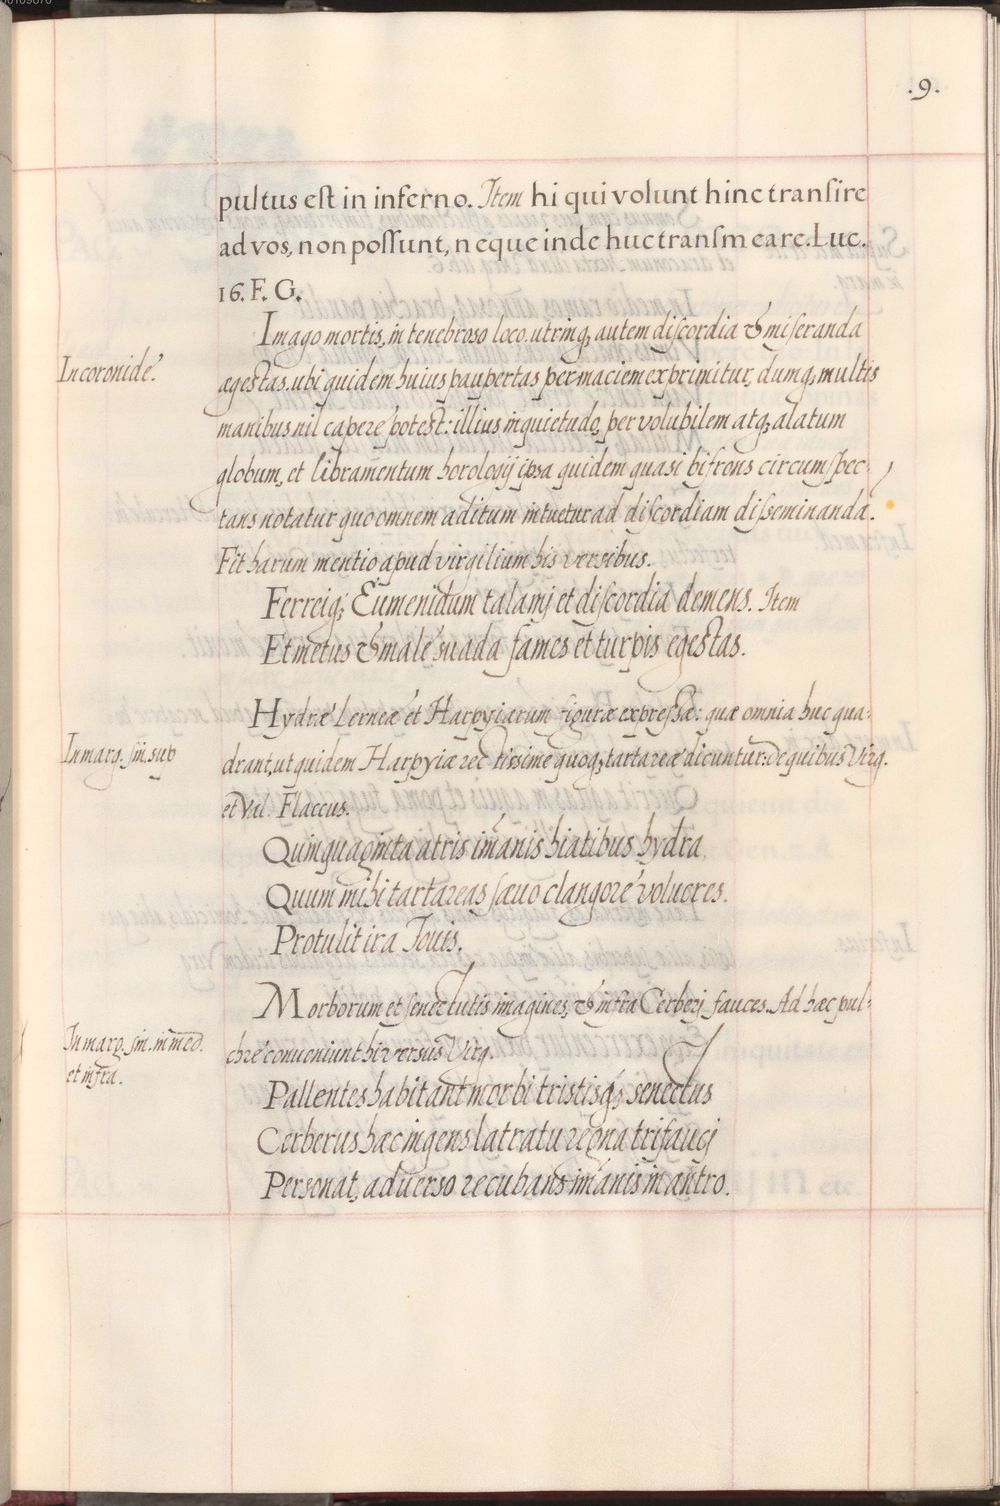 .9.
pultus est in inferno. Item hi qui volunt hinc transire
ad vos, non possunt, neque inde huc transmeare. Luc.
16. F. G.
In coronide.
Imago mortis, in tenebroso loco. utrinq; autem discordia & miseranda
ægestas. ubi quidem huius paupertas per maciem exprimitur, dumq; multis
manibus nil capere potest: illius inquietudo, per volubilem atq; alatum
globum, et libramentum horologij ipsa quidem quasi bifrons circumspec-
tans notatur quo omnem aditum intuetur ad discordiam disseminandā.
Fit harum mentio apud virgilium his versibus.
Ferreiq; Eumenidum talamj et discordia demens. Item
Et metus & male suada fames et turpis egestas.
In marg. sin. sup
Hydræ Lerneæ et Harpyiarum figuræ expressæ: quæ omnia huc qua-
drant, ut quidem Harpyiæ rectissime quoq; tartareæ dicuntur: de quibus Virg.
et Val. Flaccus.
Quinquaginta atris im̄anis hiatibus hydra,
Quum mihi tartareas sævo clangore volucres.
Protulit ira Jouis.
In marg. sin. in med.
et infrā.
Morborum et senectutis imagines, & infra Cerberj fauces. Ad hæc pul-
chre conueniunt hi versus Virg.
Pallentes habitant morbi tristisq; senectus
Cerberus hæc ingens latratu regna trifaucj
Personat, aduerso recubans im̄anis in antro.